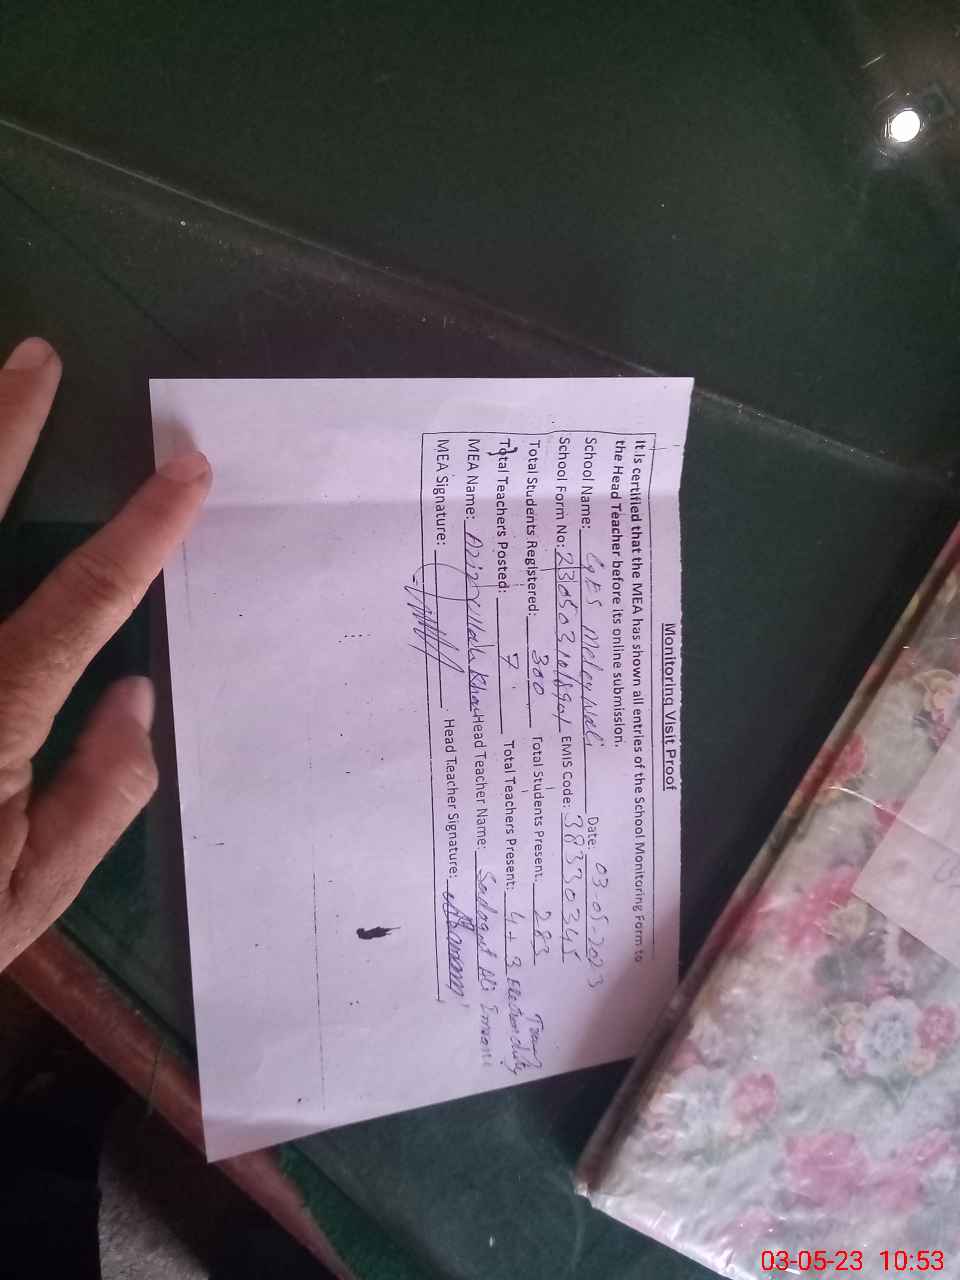 Monitoring Visit Proof
It is certified that the MEA has shown all entries of the School Monitoring Form to
the Head Teacher before its online submission.
School Name: GES Date: 03-05-2023
School Form No: EMIS Code: 38330345
Total Students Registered: 300 Total Students Present: 283
Total Teachers Posted: 7 Total Teachers Present: 4+3 Election duty
MEA Name: Azizullah Khan Head Teacher Name: Sadaqat Ali
MEA Signature: Head Teacher Signature:
03-05-23 10:53